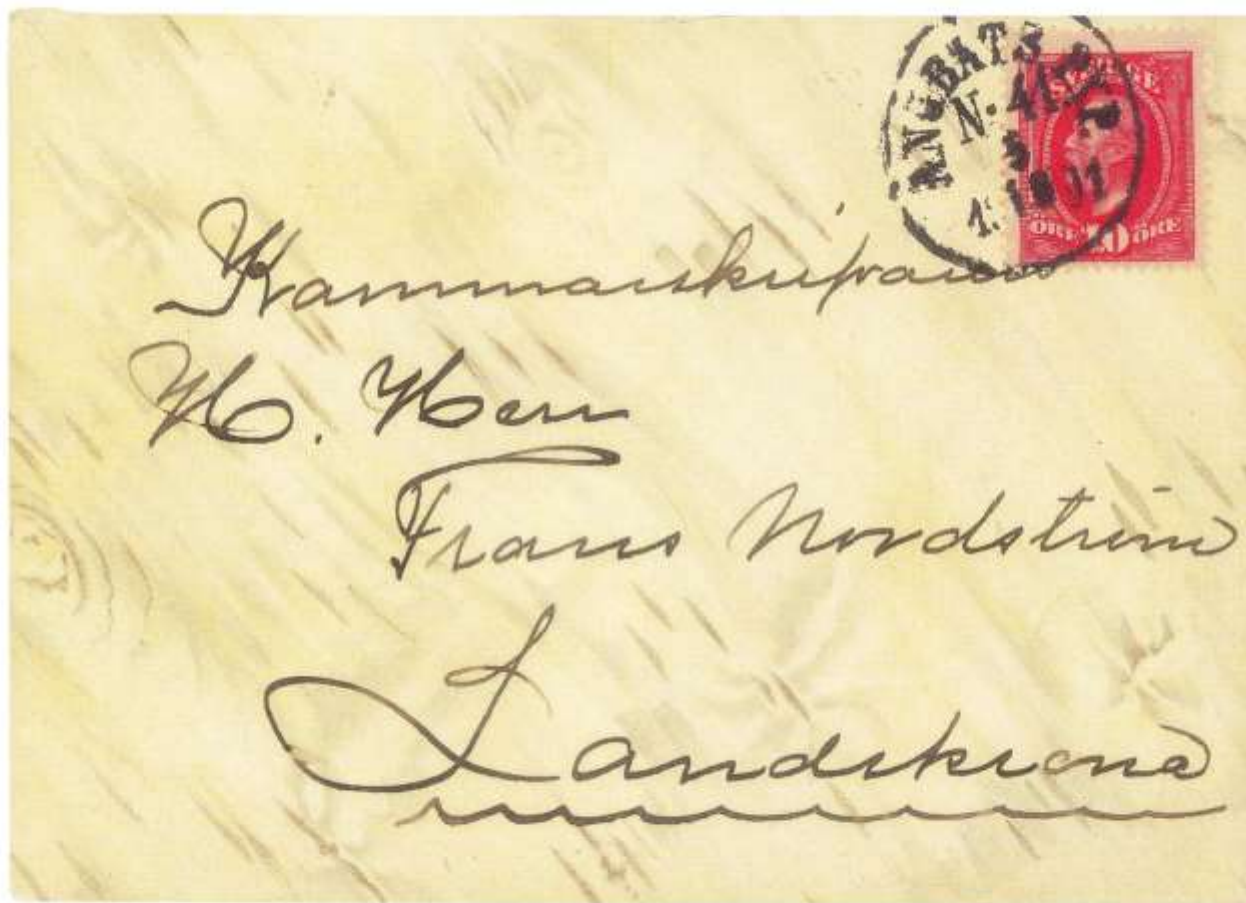 ÅNGBÅTS
N. 41
SVERIGE
ÖRE 10 ÖRE
Kammarskrifvaren
H. Herr
Frans Nordström
Landskrona